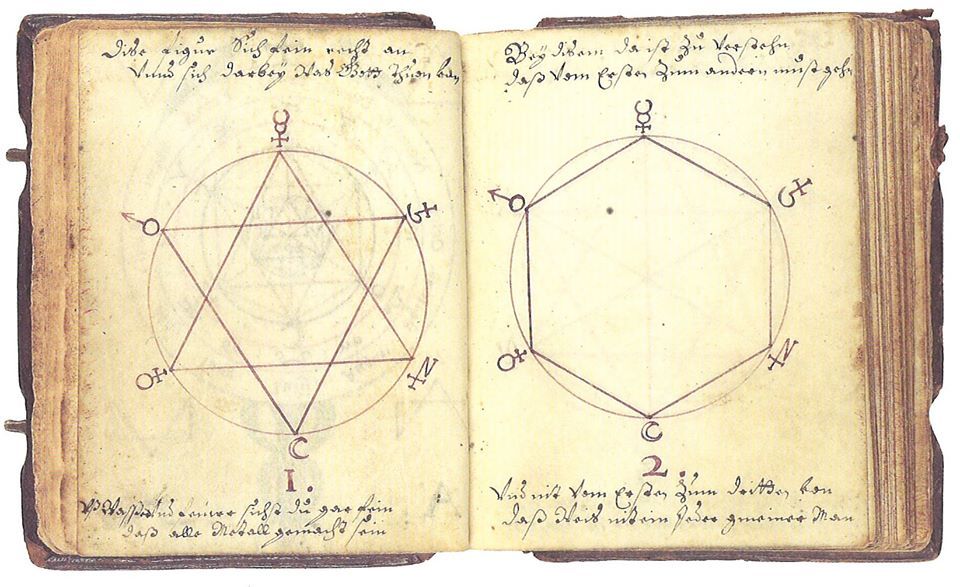 Dise figur Sich fein recht an
Unnd sich darbey was Gott thuen kan
1.
Uß Wasser und feiwer sichst du gar fein
daß alle Metall gemacht sein
Bey disem da ist zu verstehn
daß vom Ersten zum andern must gehn
2.
Und nit vom Ersten zum dritten kan
daß weis nit ein Jeder gmeiner Man